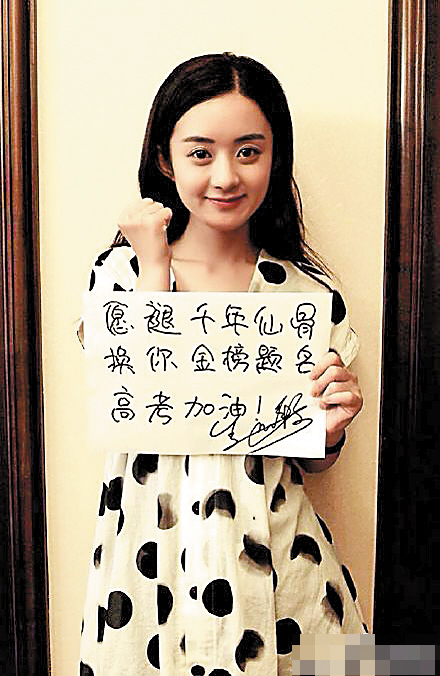 愿褪千年仙骨
换你金榜题名
高考加油！